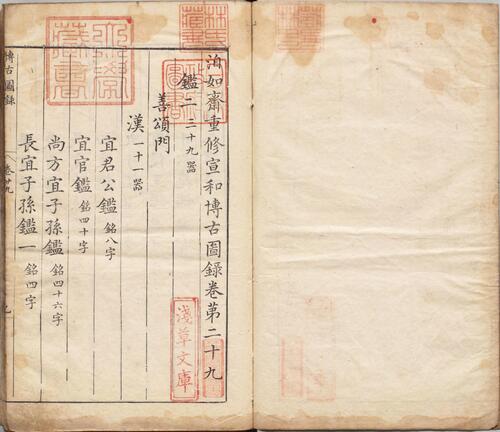 泊如齋重修宣和博古圖錄卷第二十九
鑑二 三十九器
善頌門
漢 一十一器
宜君公鑑 銘八字
宜官鑑 銘四十字
尚方宜子孫鑑 銘四十六字
長宜子孫鑑一 銘四字
博古圖錄 卷廿九
淺草文庫